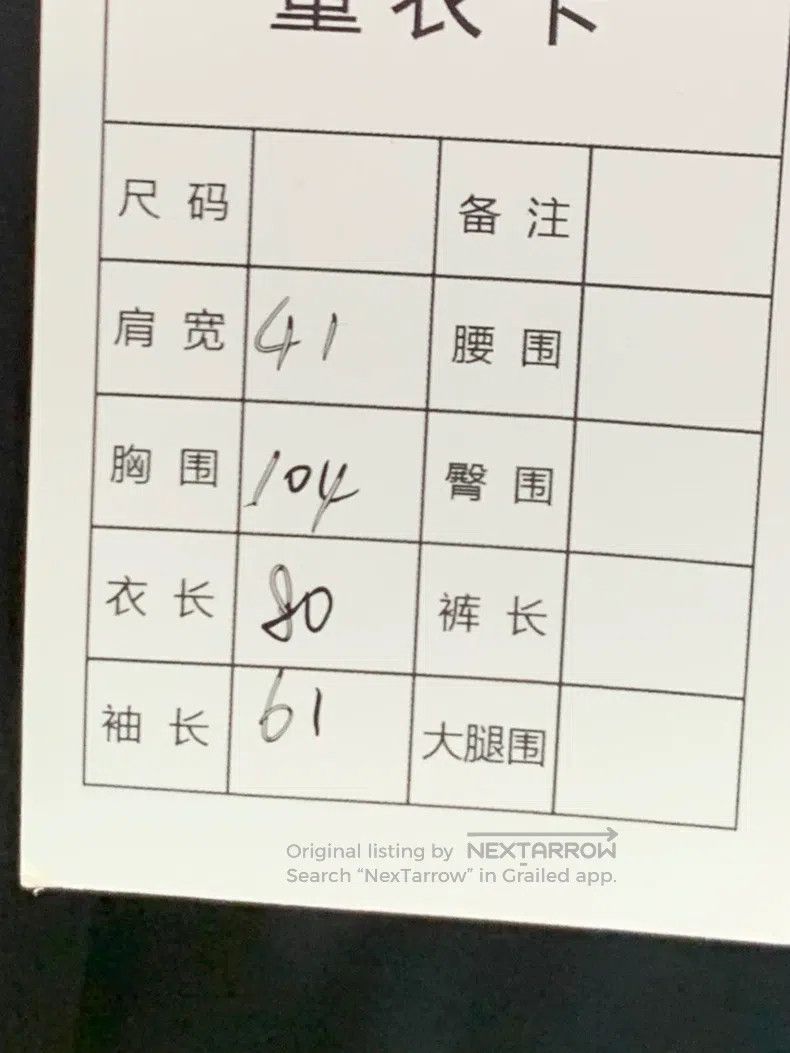 量衣卡
尺码 备注
肩宽 41 腰围
胸围 104 臀围
衣长 80 裤长
袖长 61 大腿围
Original listing by NEXTARROW
Search “NexTarrow” in Grailed app.